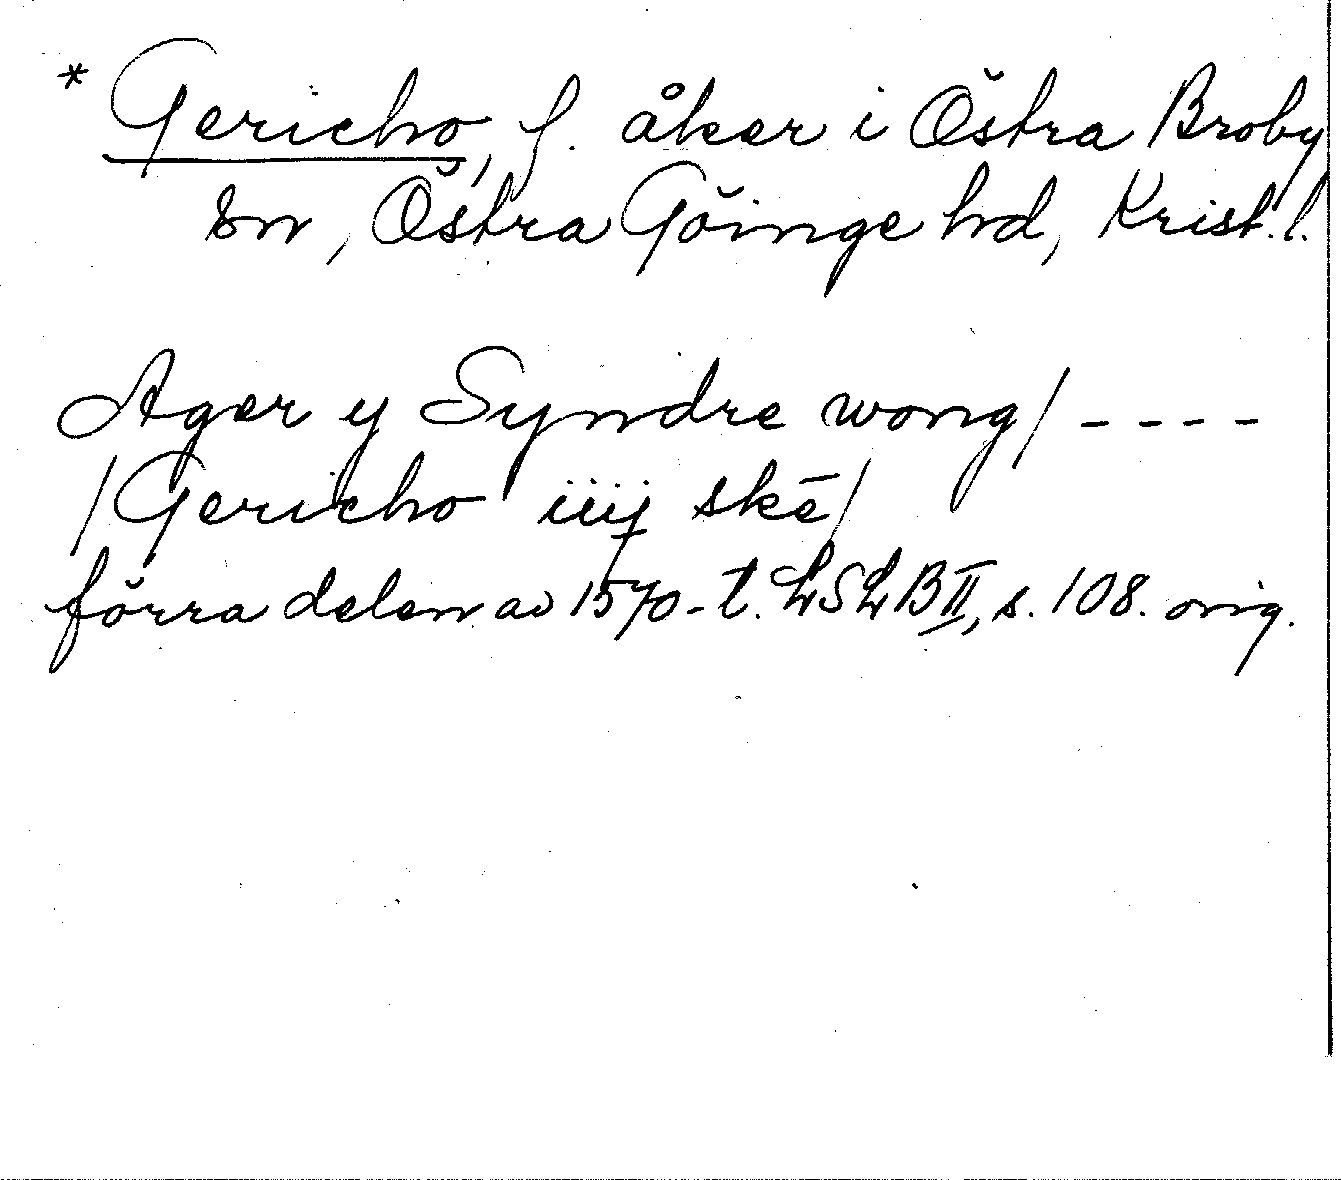 * Gericho, f. åker i Östra Broby
sn, Östra Göinge hd, Krist. l.
Ager y Syndre wong/ ----
/Gericho iiij skē/
förra delen av 1570-t. LSLB II, s. 108. orig.